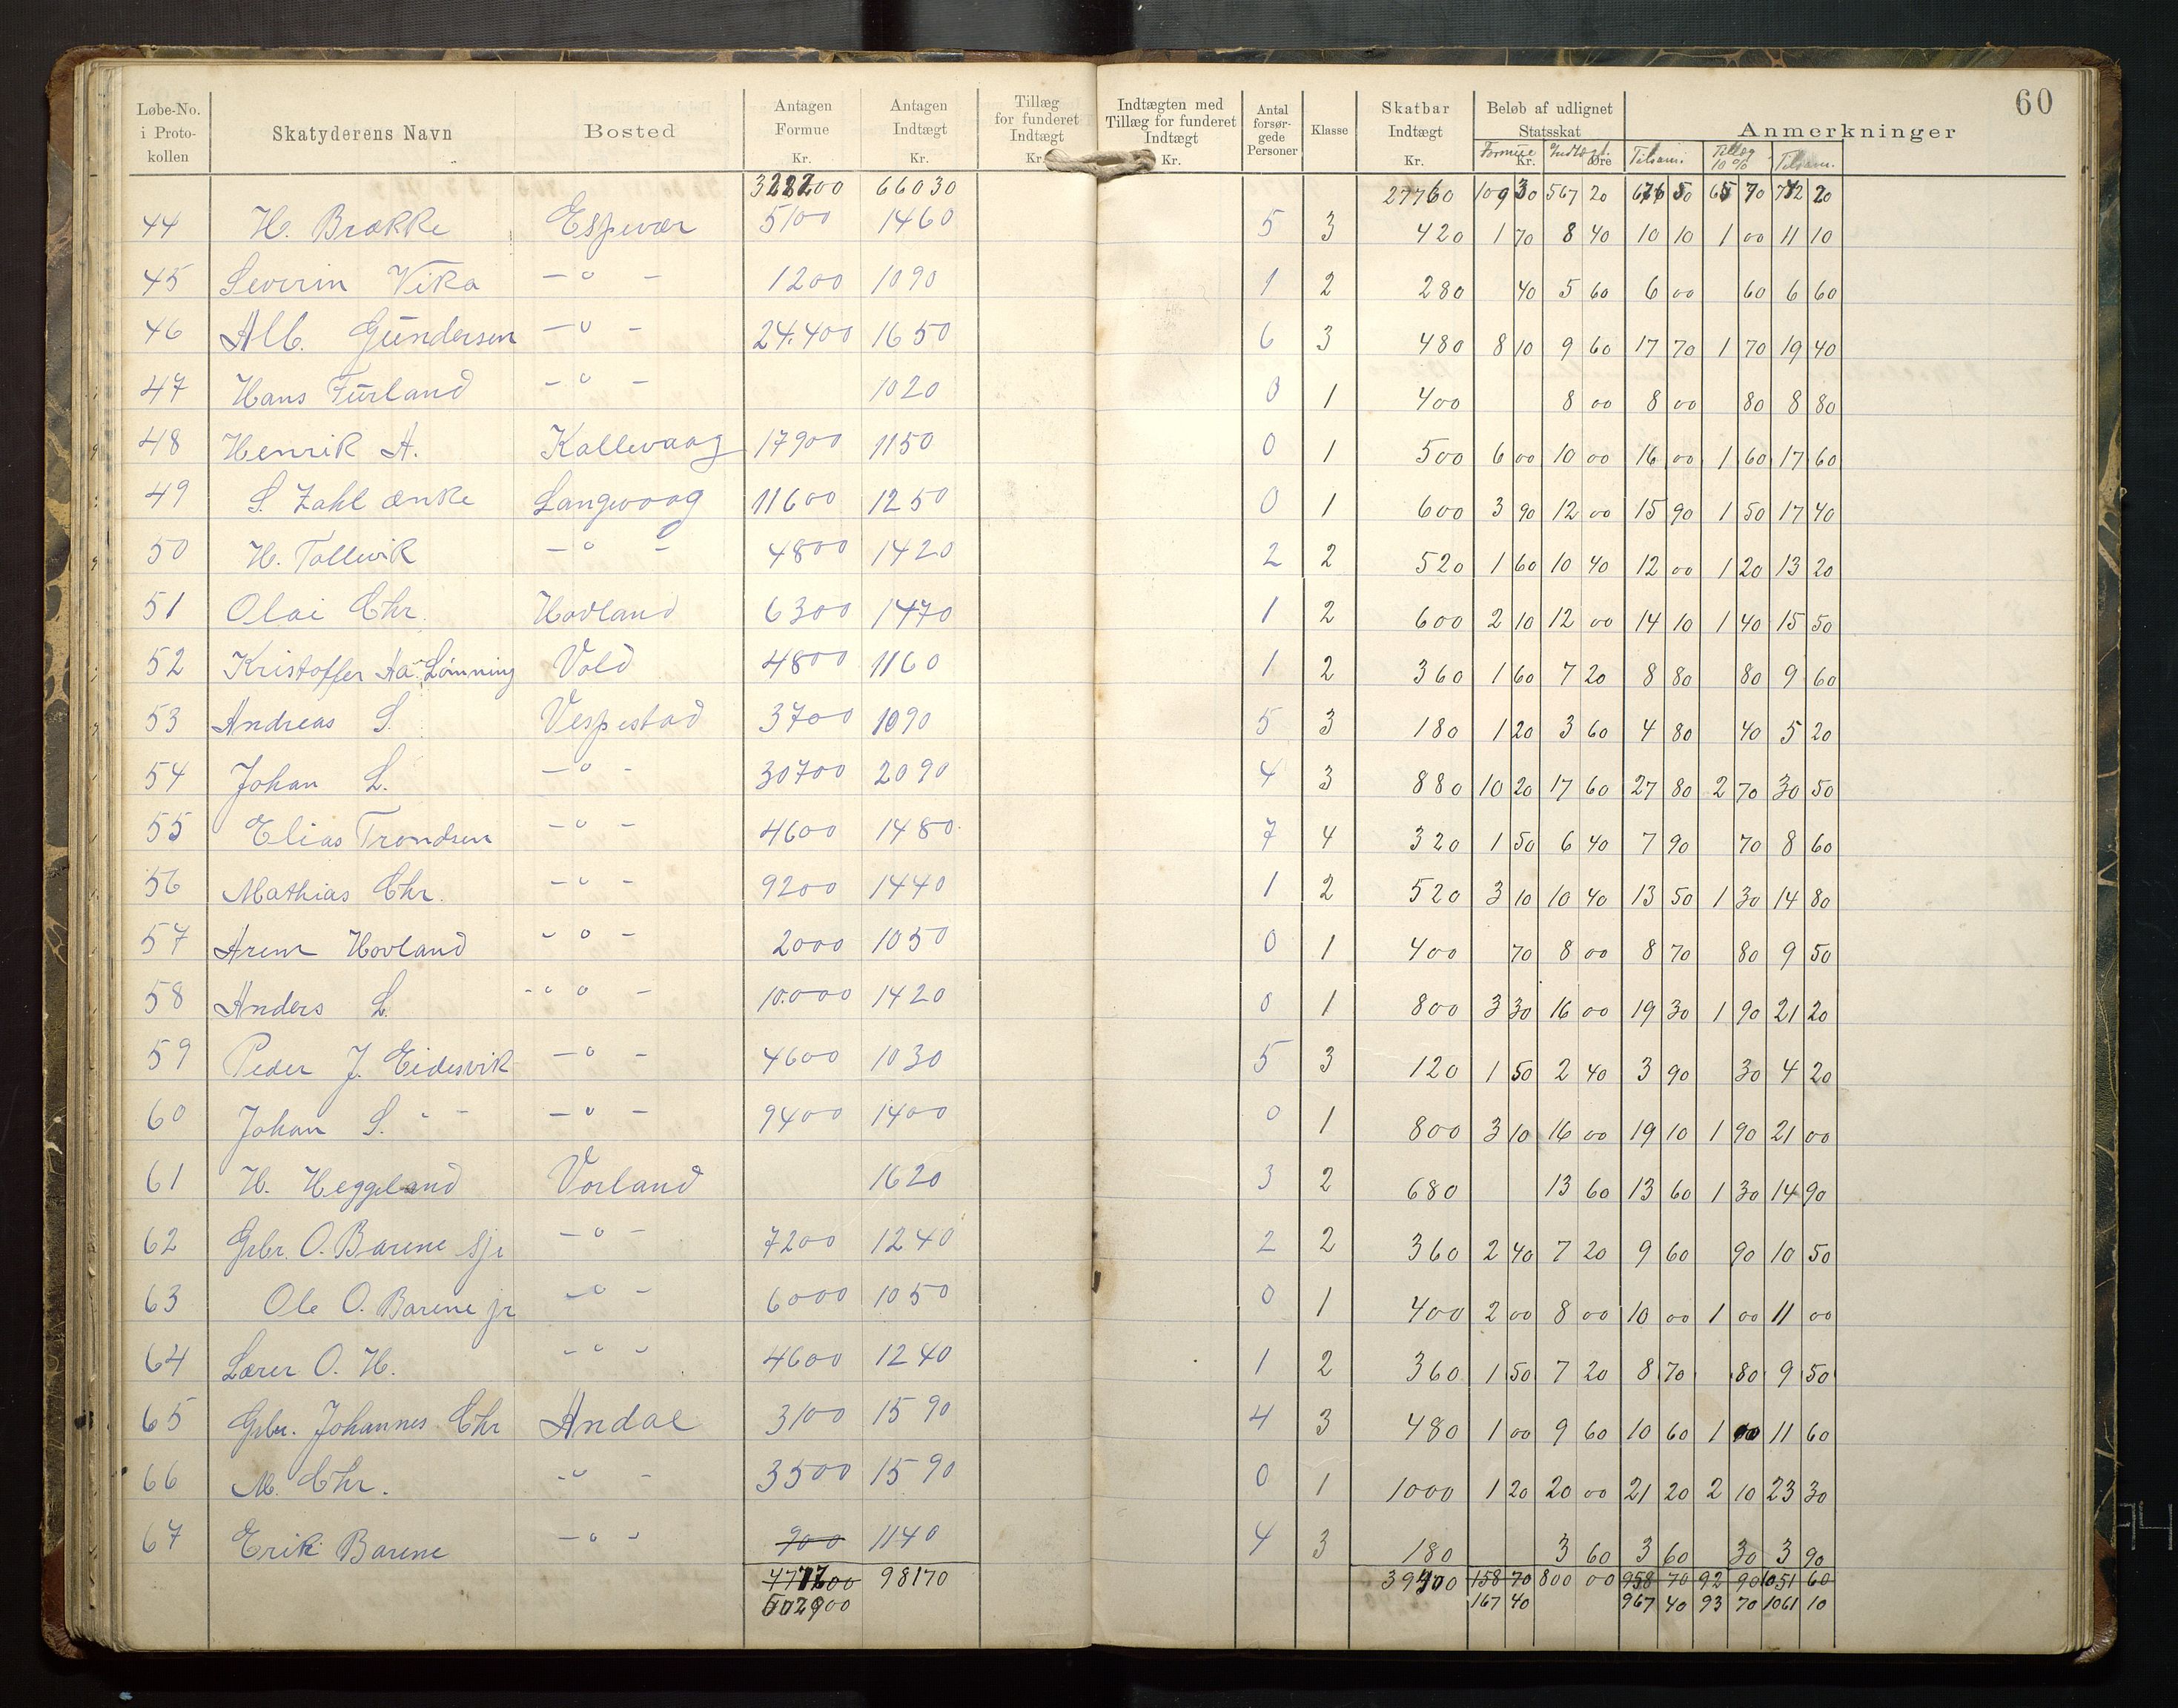 60
Løbe-No. i Proto-kollen | Skatyderens Navn | Bosted | Antagen Formue Kr. | Antagen Indtægt Kr. | Tillæg for funderet Indtægt Kr. | Indtægten med Tillæg for funderet Indtægt Kr. | Antal forsør-gede Personer | Klasse | Skatbar Indtægt Kr. | Beløb af udlignet Statsskat Formue Kr. Indtægt Øre | Anmerkninger Tilsam. Tillæg 10% Tilsam.
66030 27760 109 30 567 20
44 H. Brække Espevær 5100 1460 5 3 420 1 70 8 40 10 10 1 00 11 10
45 Severin Vika — " — 1200 1090 1 2 280 40 5 60 6 00 60 6 60
46 Alb. Gundersen — " — 24.400 1650 6 3 480 8 10 9 60 17 70 1 70 19 40
47 Hans Furland — " — 1020 0 1 400 8 00 8 00 80 8 80
48 Henrik A. Kallevaag 17900 1150 0 1 500 6 00 10 00 16 00 1 60 17 60
49 S. Zahl ænke Langevaag 11600 1250 0 1 600 3 90 12 00 15 90 1 50 17 40
50 H. Tollevik — " — 4800 1420 2 2 520 1 60 10 40 12 00 1 20 13 20
51 Olai Chr. Hovland 6300 1470 1 2 600 2 10 12 00 14 10 1 40 15 50
52 Kristoffer Aa. Lønning Vold 4800 1160 1 2 360 1 60 7 20 8 80 80 9 60
53 Andreas S. Vespestad 3700 1090 5 3 180 1 20 3 60 4 80 40 5 20
54 Johan L. — " — 30700 2090 4 3 880 10 20 17 60 27 80 2 70 30 50
55 Elias Trondsen — " — 4600 1480 7 4 320 1 50 6 40 7 90 70 8 60
56 Mathias Chr. — " — 9200 1440 1 2 520 3 10 10 40 13 50 1 30 14 80
57 Hovland — " — 2000 1050 0 1 400 70 8 00 8 70 80 9 50
58 Anders L. — " — 10.000 1420 0 1 800 3 30 16 00 19 30 1 90 21 20
59 Peder J. Eidesvik — " — 4600 1030 5 3 120 1 50 2 40 3 90 30 4 20
60 Johan S. " — — " — 9400 1400 0 1 800 3 10 16 00 19 10 1 90 21 00
61 H. Heggeland Vorland 1620 3 2 680 13 60 13 60 1 30 14 90
62 Gbr. O. Barene sr — " — 7200 1240 2 2 360 2 40 7 20 9 60 90 10 50
63 Ole O. Barene jr — " — 6000 1050 0 1 400 2 00 8 00 10 00 1 00 11 00
64 Lærer O. H. — " — 4600 1240 1 2 360 1 50 7 20 8 70 80 9 50
65 Gbr. Johannes Chr Andal 3100 1590 4 3 480 1 00 9 60 10 60 1 00 11 60
66 M. Chr. — " — 3500 1590 0 1 1000 1 20 20 00 21 20 2 10 23 30
67 Erik Barene — " — 900 1140 4 3 180 3 60 3 60 30 3 90
98170 158 70 800 00 958 70 92 90 1051 60
502900 167 40 967 40 93 70 1061 10